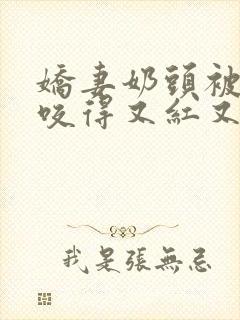 嬌妻奶頭被
咬得又紅又
我是張無忌